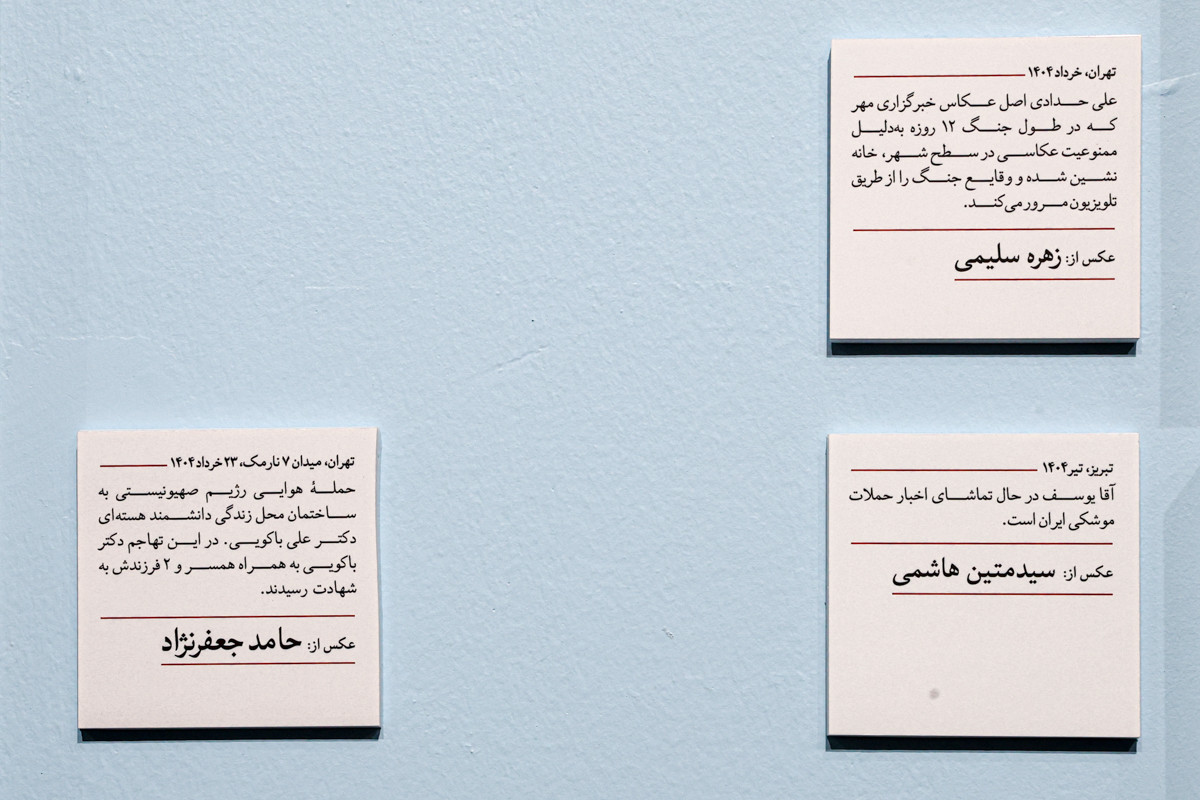 تهران، خرداد ۱۴۰۴
علی حدادی اصل عکاس خبرگزاری مهر
که در طول جنگ ۱۲ روزه به‌دلیل
ممنوعیت عکاسی در سطح شهر، خانه
نشین شده و وقایع جنگ را از طریق
تلویزیون مرور می‌کند.
عکس از: زهره سلیمی
تبریز، تیر ۱۴۰۴
آقا یوسف در حال تماشای اخبار حملات
موشکی ایران است.
عکس از: سیدمتین هاشمی
تهران، میدان ۷ نارمک، ۲۳ خرداد ۱۴۰۴
حملهٔ هوایی رژیم صهیونیستی به
ساختمان محل زندگی دانشمند هسته‌ای
دکتر علی باکویی. در این تهاجم دکتر
باکویی به همراه همسر و ۲ فرزندش به
شهادت رسیدند.
عکس از: حامد جعفرنژاد